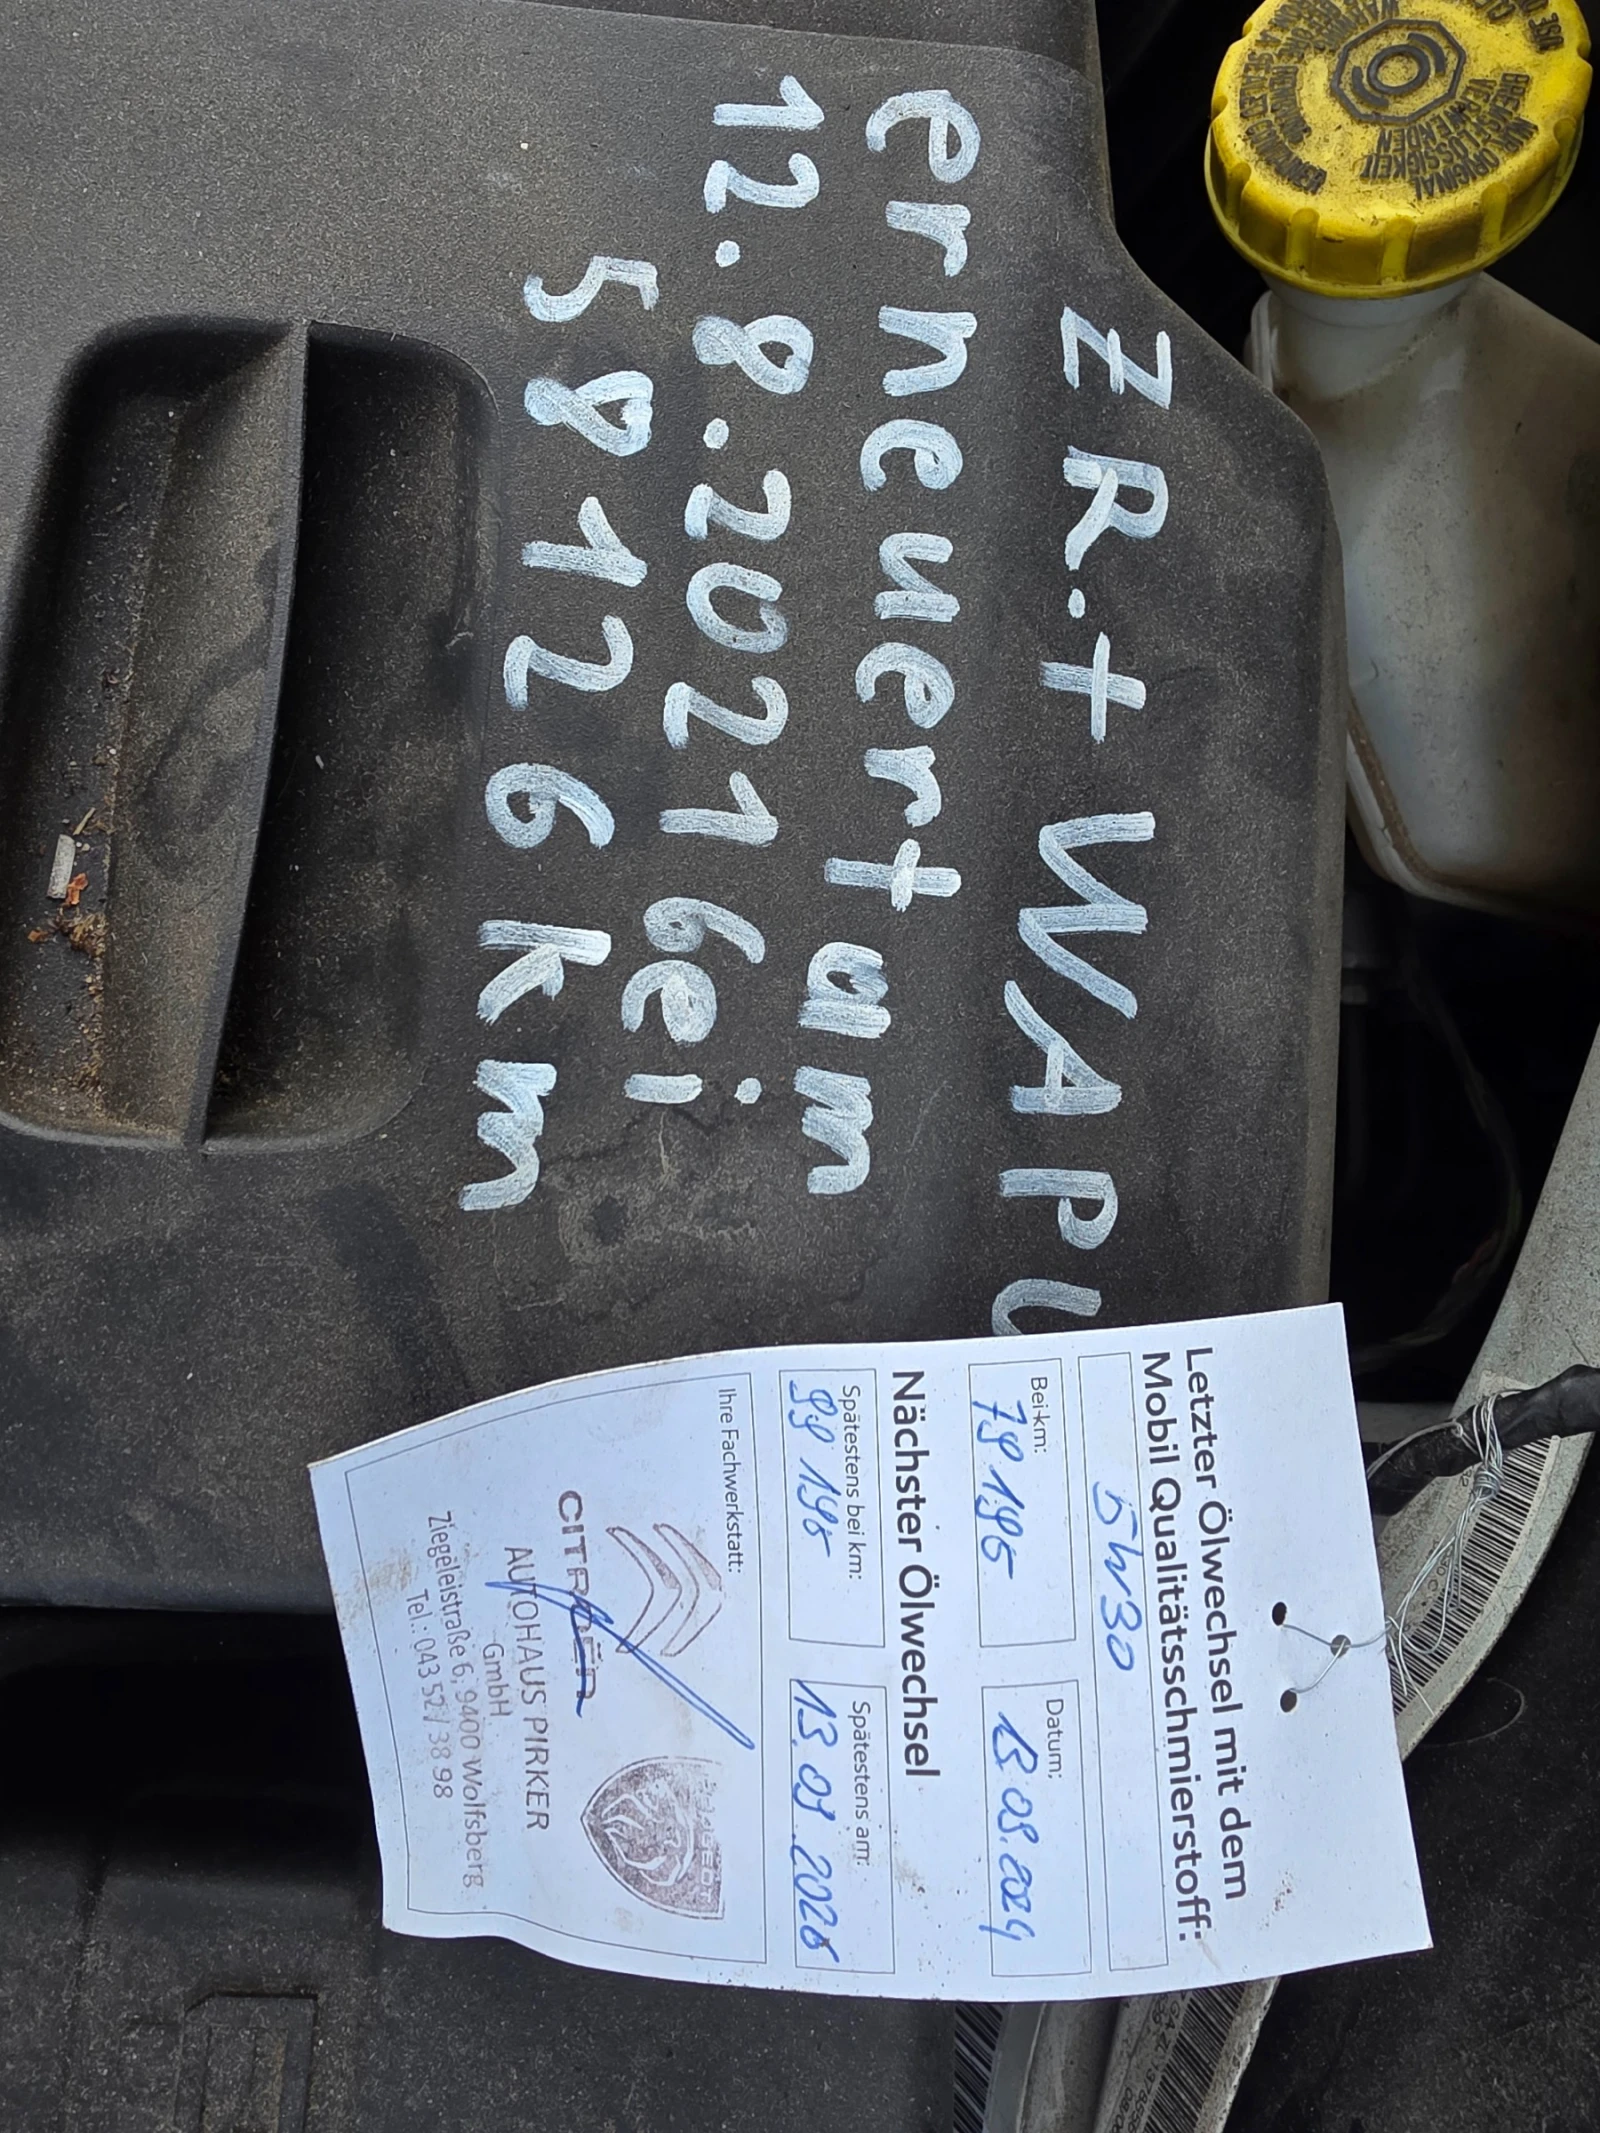 ZR.+ WAPU
erneuert am
12.8.2021 bei
58126 km
Letzter Ölwechsel mit dem
Mobil Qualitätsschmierstoff:
5W30
Bei km: Datum:
79 195 13.09.2024
Nächster Ölwechsel
Spätestens bei km: Spätestens am:
99 195 13.09.2026
Ihre Fachwerkstatt:
CITROËN PEUGEOT
AUTOHAUS PIRKER
GmbH
Ziegeleistraße 6, 9400 Wolfsberg
Tel.: 043 52 / 38 98
NUR ORIGINAL
BREMSFLÜSSIGKEIT
VERWENDEN